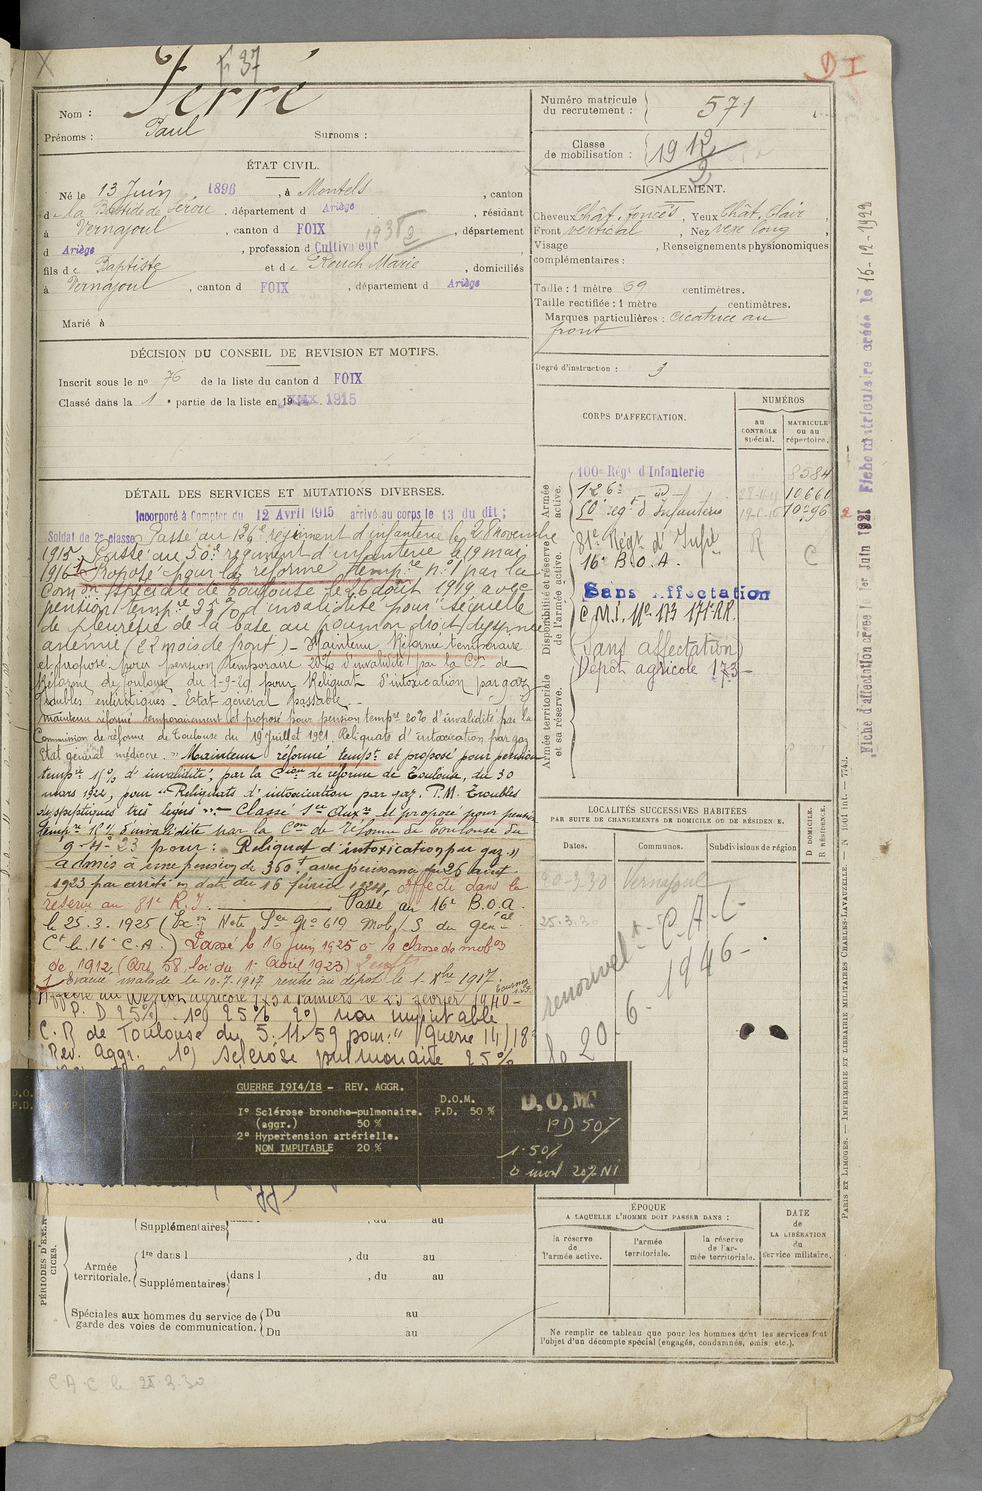 X
f 37
D I
Nom : Ferré
Prénoms : Paul Surnoms :
Numéro matricule du recrutement : 571
Classe de mobilisation : 1912
ÉTAT CIVIL.
Né le 13 Juin 1896, à Montels, canton
d e la Bastide de Sérou, département d Ariège, résidant
à Vernajoul, canton d FOIX, département
d Ariège, profession d Cultivateur
fils de Baptiste et de Rouch Marie, domiciliés
à Vernajoul, canton d FOIX, département d Ariège
Marié à
SIGNALEMENT.
Cheveux Chât. foncés, Yeux Chât. clair,
Front vertical, Nez long,
Visage , Renseignements physionomiques
complémentaires :
Taille : 1 mètre 69 centimètres.
Taille rectifiée : 1 mètre centimètres.
Marques particulières : cicatrice au
front
Degré d'instruction : 3
DÉCISION DU CONSEIL DE REVISION ET MOTIFS.
Inscrit sous le nº 76 de la liste du canton d FOIX
Classé dans la 1e partie de la liste en 1915
DÉTAIL DES SERVICES ET MUTATIONS DIVERSES.
Incorporé à Compter du 12 Avril 1915 arrivé au corps le 13 du dit ;
Soldat de 2e classe Passé au 126e régiment d'infanterie le 28 novembre
1915. Passé au 50e régiment d'infanterie le 19 mai
1916. Proposé pour la réforme tempre nº 1 par la
Comon spéciale de Toulouse le 26 août 1919 avec
pension tempre 25% d'invalidité pour séquelle
de pleurésie de la base au poumon droit, dyspnée
anémie (22 mois de front) - Maintenu Réformé temporaire
et proposé pour pension temporaire 20% d'invalidité par la Con de
Réforme de Toulouse du 1-9-20 pour Reliquat d'intoxication par gaz
Troubles entéritiques. Etat général passable.
Maintenu réformé temporairement et proposé pour pension tempre 20% d'invalidité par la
Commission de réforme de Toulouse du 19 Juillet 1921. Reliquats d'intoxication par gaz
Etat général médiocre. " Maintenu réformé tempt et proposé pour pension
tempre 15% d'invalidité, par la Cion de réforme de Toulouse, du 30
mars 1922, pour "Reliquats d'intoxication par gaz. P.M. Troubles
dyspeptiques très légers". - Classé 1er aux et proposé pour pension
tempre 10% d'invalidité par la Con de Réforme de Toulouse du
9-4-23 pour : Reliquat d'intoxication par gaz "
admis à une pension de 360f avec jouissance du 26 août
1923 par arrêté en date du 16 février 1924, affecté dans la
réserve au 81e R.I. Passé au 16e B.O.A.
le 25.3.1925 (Exon Note Sce Nº 619 Mob/S du génal
Ct le 16e C.A.) Passé le 16 Juin 1925 à la classe de mobon
de 1912 (Art 58, loi du 1er Avril 1923) 2 enfts
1 Evacué malade le 10.7.1917 rentré au dépôt le 1. Xbre 1917.
Affecté au Dépôt agricole 173 à Pamiers le 23 février 1940 -
P. D 25% - 1º) 25% 2º) non imputable
C. R de Toulouse du 5.11.59 pour : " Guerre 14/18
Rev. Aggr. 1º) Sclérose pulmonaire 25%
GUERRE 1914/18 - REV. AGGR.
1º Sclérose broncho-pulmonaire.
(aggr.) 50 %
2º Hypertension artérielle.
NON IMPUTABLE 20 %
D.O.M.
P.D. 50 %
D.O.M.
PD 50%
1-50%
20% NI
D.O.
P.D.
CORPS D'AFFECTATION.
NUMÉROS
au CONTRÔLE spécial.
MATRICULE ou au répertoire.
Armée active.
100e Régt d'Infanterie 8584
126e - d° - 28-11-15 10660
50e régt d'Infanterie 19-5-16 10296
Disponibilité et réserve de l'armée active.
81e Régt d'Infie R C
16e B.O.A.
Sans Affectation
C.M.I. Nº 173 171e R.R.
(Sans affectation)
Dépôt agricole 173 -
Armée territoriale et sa réserve.
LOCALITÉS SUCCESSIVES HABITÉES
PAR SUITE DE CHANGEMENTS DE DOMICILE OU DE RÉSIDENCE.
Dates. Communes. Subdivisions de région
D. DOMICILE.
R. RÉSIDENCE.
20-3-30 Vernajoul
25.3.30 C.A.C.
renouvelt
le 20-6-1946 -
PÉRIODES D'EXERCICES.
Supplémentaires dans l , du au
Armée territoriale.
1re dans l , du au
Supplémentaires dans l , du au
Spéciales aux hommes du service de garde des voies de communication.
Du au
Du au
ÉPOQUE
A LAQUELLE L'HOMME DOIT PASSER DANS :
la réserve de l'armée active.
l'armée territoriale.
la réserve de l'armée territoriale.
DATE de LA LIBÉRATION du service militaire.
Ne remplir ce tableau que pour les hommes dont les services font
l'objet d'un décompte spécial (engagés, condamnés, omis, etc.).
C.A.C le 25.3.30
Fiche d'affectation créée le 1er Juin 1921 Fiche matriculaire créée le 15-12-1923
PARIS ET LIMOGES. — IMPRIMERIE ET LIBRAIRIE MILITAIRES CHARLES-LAVAUZELLE. — N° 1001 int. — 7743.